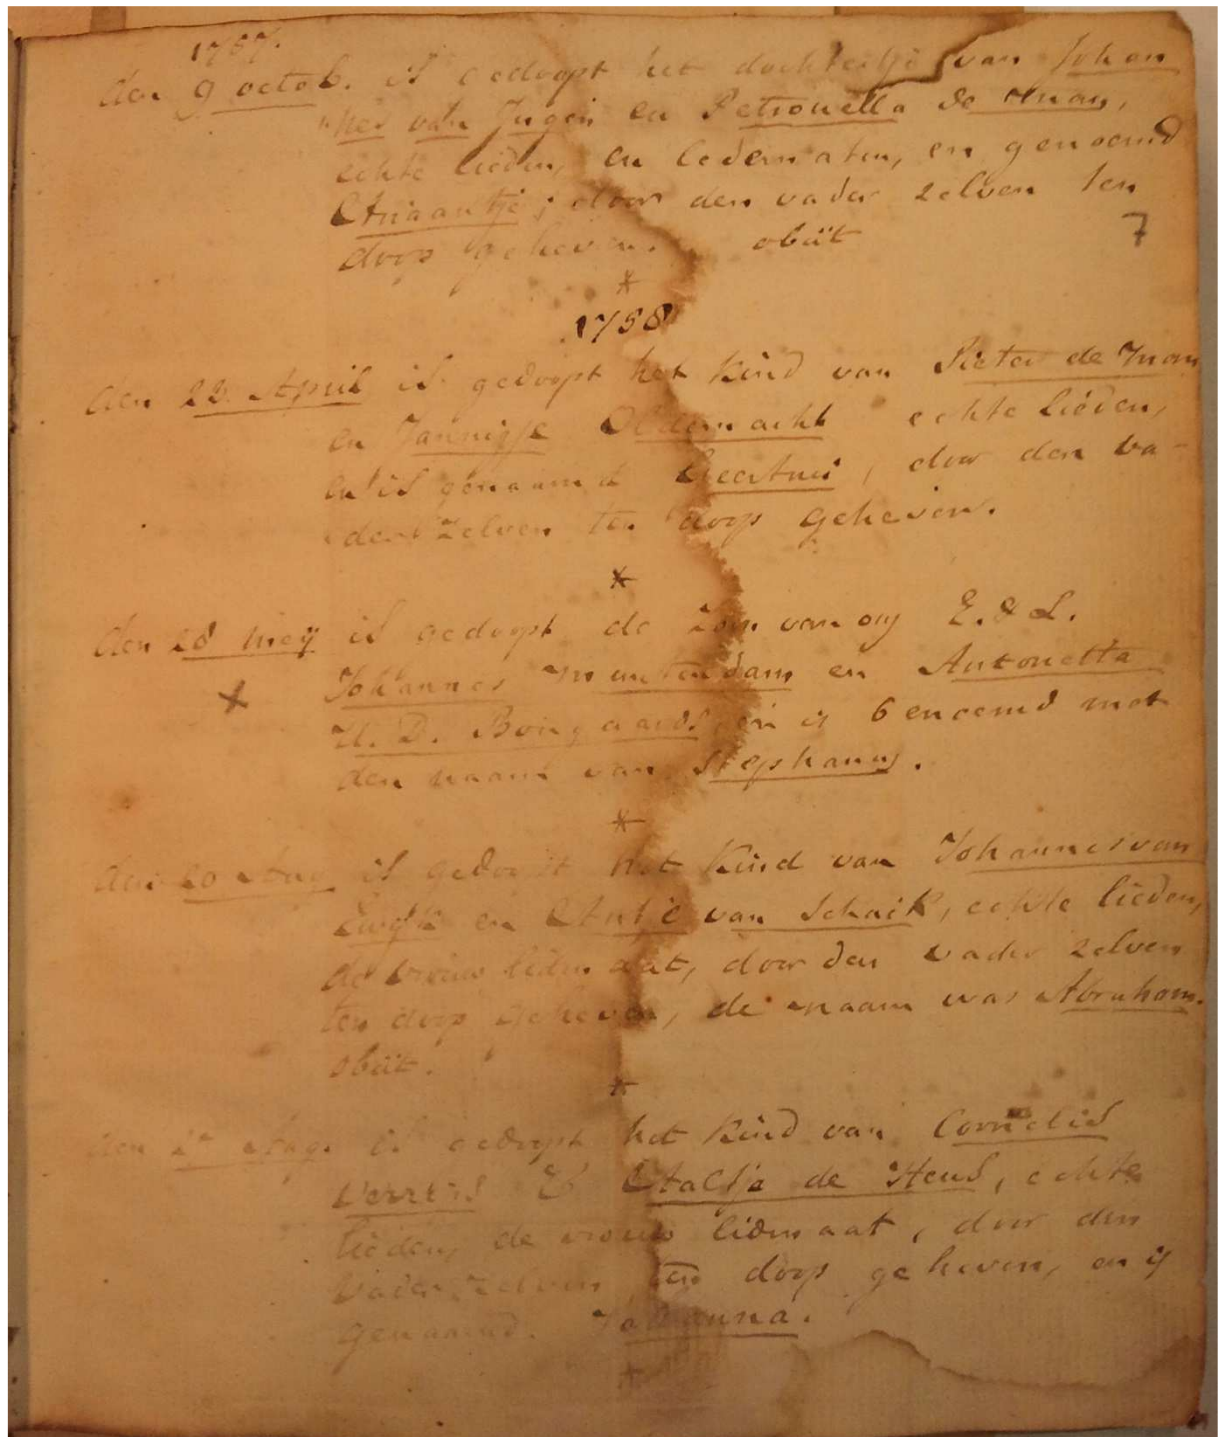 1757.
den 9 octob. is gedoopt het dochtertje van Johan
"nes van Ingen en Petronella de Man,
echte lieden, en ledematen, en genoemd
Ariaantje; door den vader zelven ten
doop geheven. obiit 7
*
1758
den 23. April is gedoopt het kind van Pieter de Man
en Jannigje Oldemacht echte lieden,
en is genaamd Geertrui, door den va-
der zelven ten doop geheven.
*
den 28 Meij is gedoopt de zoon van ons E. & L.
x Johannes Muntendam en Antonetta
H. D. Bongaards, en is benoemd met
den naam van Stephanus.
*
den 20 Aug is gedoopt het kind van Johannes van
Ewijk en Antie van Schaik, echte lieden,
de vrouw lidmaat, door den vader zelven
ten doop geheven, de naam was Abraham.
obiit.
*
den Aug. is gedoopt het kind van Cornelis
Verreis & Aaltje de Heus, echte
lieden, de vrouw lidmaat, door den
vader zelven ten doop geheven, en is
genaamd. Johanna.
*